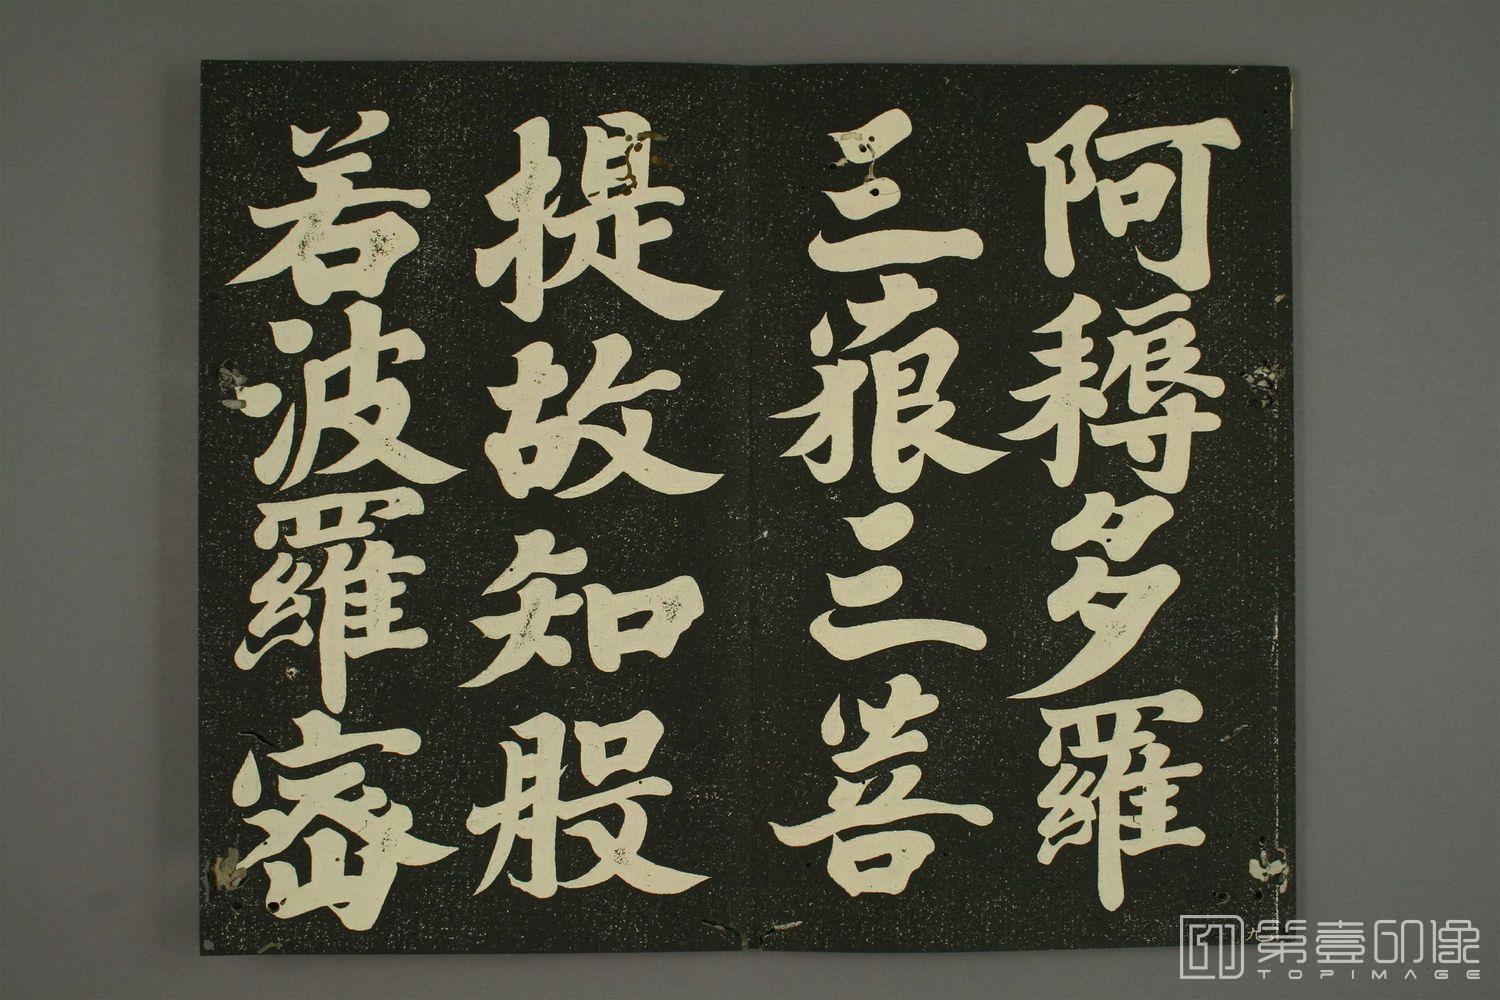 阿耨多羅
三藐三菩
提故知般
若波羅密
第壹印像
TOPIMAGE